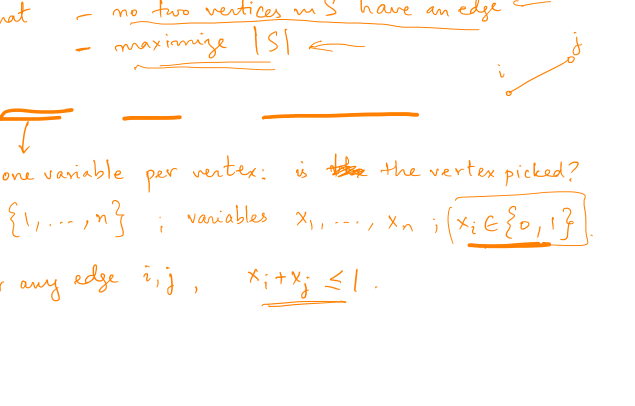 hat - no two vertices in S have an edge
- maximize |S|
i j
one variable per vertex: is the vertex picked?
{1, ..., n} ; variables x₁, ..., xₙ ; xᵢ ∈ {0, 1}.
any edge i, j, xᵢ + xⱼ ≤ 1.